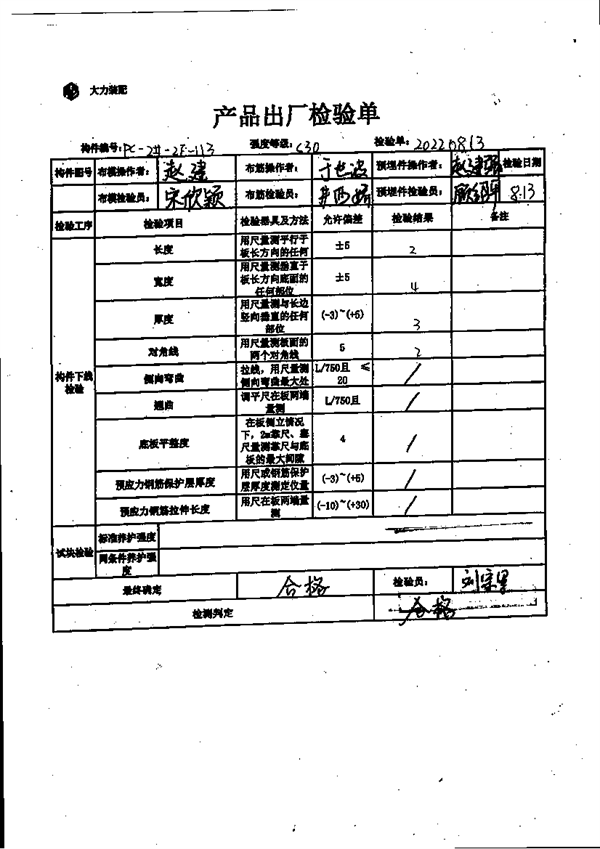 大力装配
产品出厂检验单
构件编号:PC-2#-2F-113 强度等级: C30 检验单: 20220813
构件图号 布模操作者: 赵建 布筋操作者: 预埋件操作者: 赵建强 检验日期
布模检验员: 宋欣颖 布筋检验员: 预埋件检验员: 8.13
检验工序 检验项目 检验器具及方法 允许偏差 检验结果 备注
构件下线检验
长度 用尺量测平行于板长方向的任何 ±5 2
宽度 用尺量测垂直于板长方向底面的任何部位 ±5 4
厚度 用尺量测与长边竖向垂直的任何部位 (-3)~(+5) 3
对角线 用尺量测板面的两个对角线 5 2
侧向弯曲 拉线，用尺量测侧向弯曲最大处 L/750且 ≤20 /
翘曲 调平尺在板两端量测 L/750且 /
底板平整度 在板侧立情况下，2m靠尺、塞尺量测靠尺与底板的最大间隙 4 /
预应力钢筋保护层厚度 用尺或钢筋保护层厚度测定仪量 (-3)~(+5) /
预应力钢筋拉伸长度 用尺在板两端量测 (-10)~(+30) /
试块检验 标准养护强度
同条件养护强度
最终确定 合格 检验员:
检测判定 合格